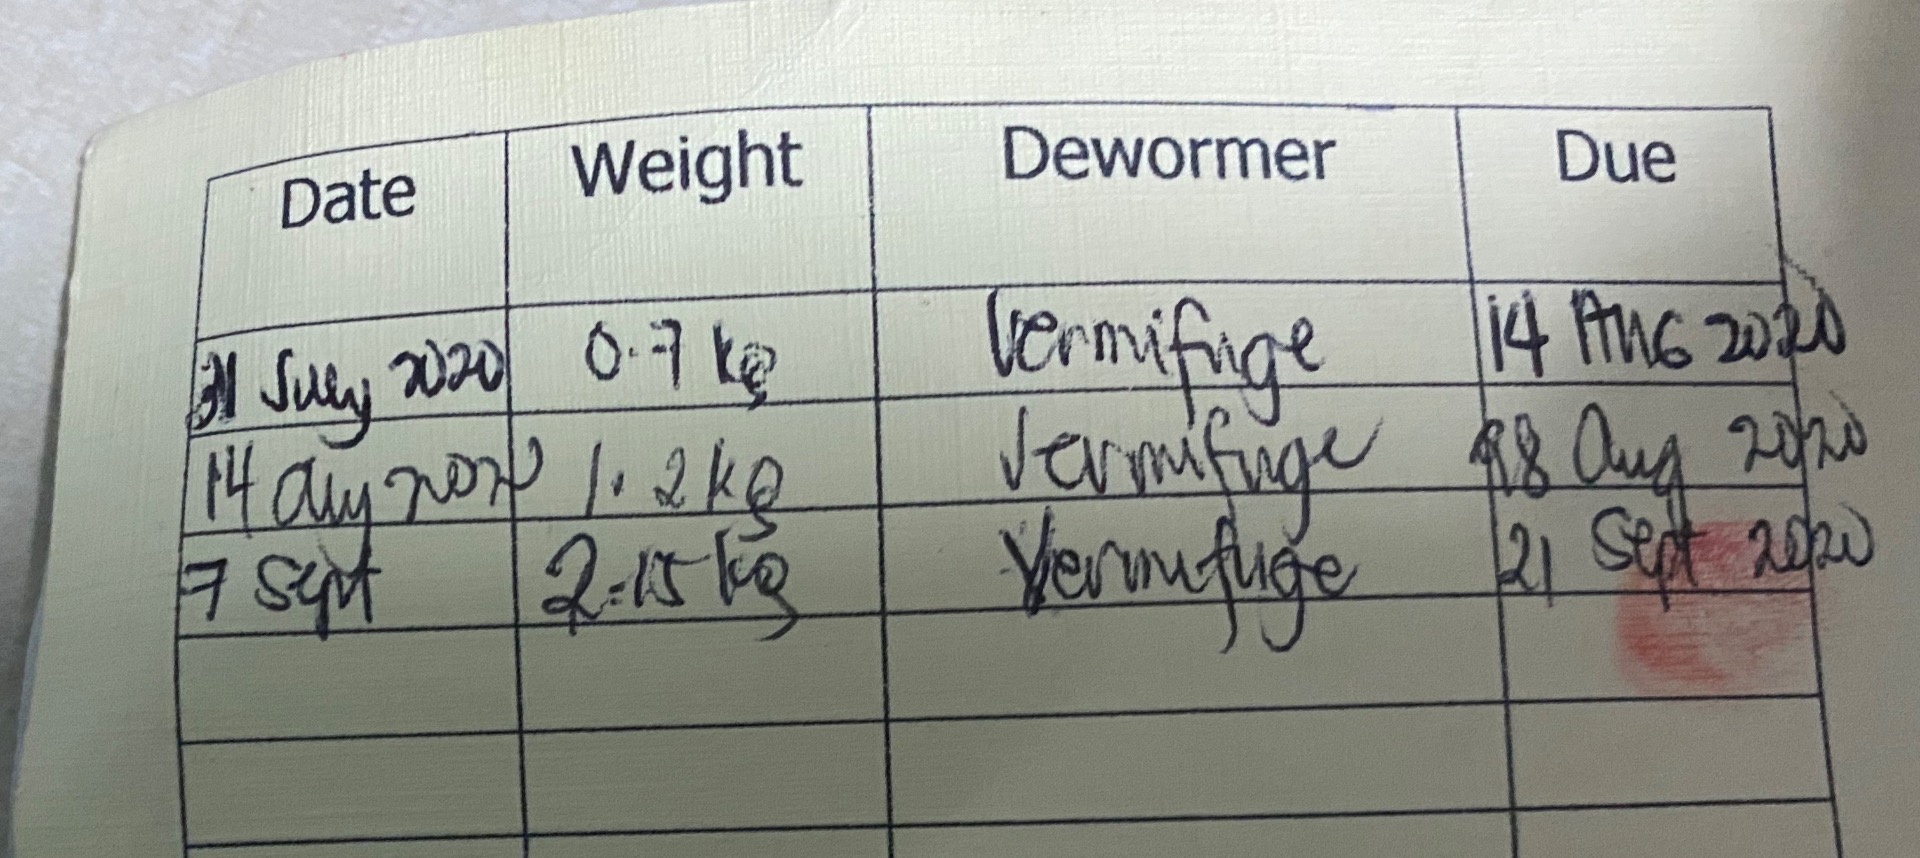 Date Weight Dewormer Due
31 July 2020 0.7 kg Vermifuge 14 AUG 2020
14 Aug 2020 1.2 kg Vermifuge 28 Aug 2020
7 Sept 2.15 kg Vermifuge 21 Sept 2020